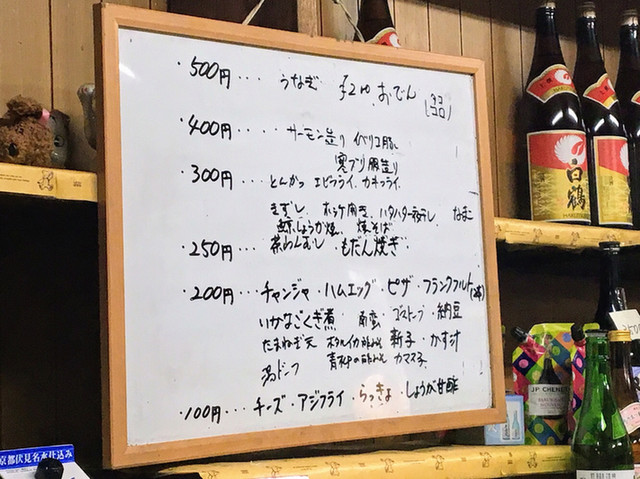 ・500円・・・ うなぎ おでん
・400円・・・・ サーモン造り イベリコ豚
寒ブリ 造り
・300円・・・・ とんかつ エビフライ. カキフライ.
きずし. ホッケ開き. ハタハタ一夜干し なまこ
しょうが焼. 焼そば
・250円・・・ 茶わんむし. もだん焼き
・200円・・・ チャンジャ・ハムエッグ・ピザ・フランクフルト
いかなごくぎ煮 南蛮 納豆
たまねぎ天 ホタルイカ 新子・かす汁
湯ドーフ カマス子.
・100円・・・ チーズ・アジフライ・らっきょ・しょうが甘酢
白鶴
JP CHENET
京都伏見名水仕込み